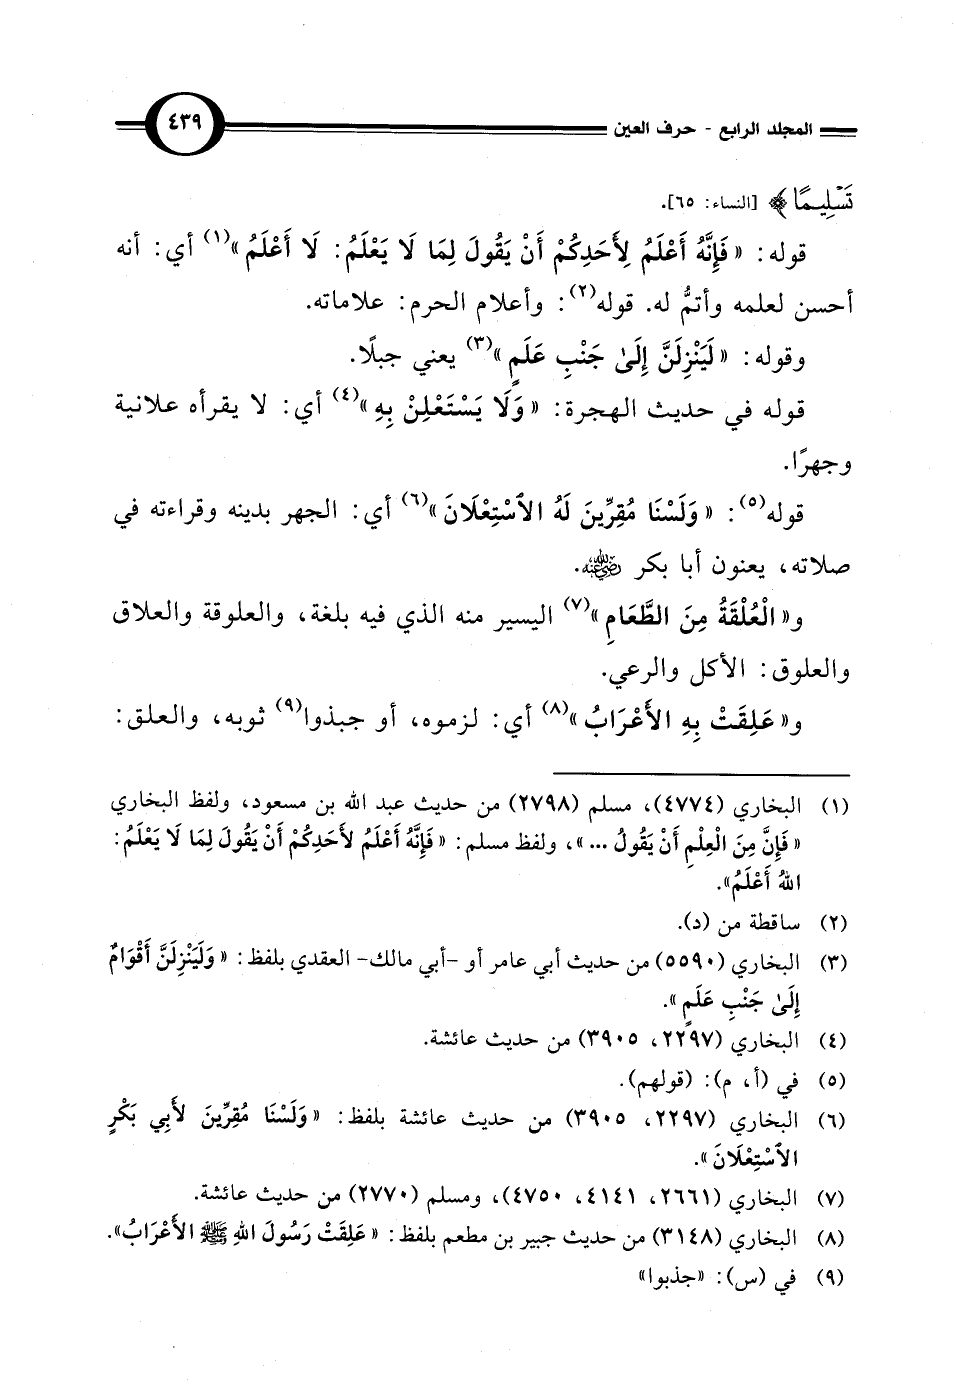 المجلد الرابع - حرف العين ٤٣٩
تَسْلِيمًا﴾ [النساء: ٦٥].
قوله: «فَإِنَّهُ أَعْلَمُ لِأَحَدِكُمْ أَنْ يَقُولَ لِمَا لَا يَعْلَمُ: لَا أَعْلَمُ»(١) أي: أنه
أحسن لعلمه وأتمُّ له. قوله(٢): وأعلام الحرم: علاماته.
وقوله: «لَيَنْزِلَنَّ إِلَىٰ جَنْبِ عَلَمٍ»(٣) يعني جبلًا.
قوله في حديث الهجرة: «وَلَا يَسْتَعْلِنْ بِهِ»(٤) أي: لا يقرأه علانية
وجهرًا.
قوله(٥): «وَلَسْنَا مُقِرِّينَ لَهُ الاسْتِعْلَانَ»(٦) أي: الجهر بدينه وقراءته في
صلاته، يعنون أبا بكر رضي الله عنه.
و«الْعُلْقَةُ مِنَ الطَّعَامِ»(٧) اليسير منه الذي فيه بلغة، والعلوقة والعلاق
والعلوق: الأكل والرعي.
و«عَلِقَتْ بِهِ الأَعْرَابُ»(٨) أي: لزموه، أو جبذوا(٩) ثوبه، والعلق:
(١) البخاري (٤٧٧٤)، مسلم (٢٧٩٨) من حديث عبد الله بن مسعود، ولفظ البخاري
«فَإِنَّ مِنَ الْعِلْمِ أَنْ يَقُولُ ...»، ولفظ مسلم: «فَإِنَّهُ أَعْلَمُ لأَحَدِكُمْ أَنْ يَقُولَ لِمَا لَا يَعْلَمُ:
اللهُ أَعْلَمُ».
(٢) ساقطة من (د).
(٣) البخاري (٥٥٩٠) من حديث أبي عامر أو -أبي مالك- العقدي بلفظ: «وَلَيَنْزِلَنَّ أَقْوَامٌ
إِلَىٰ جَنْبِ عَلَمٍ».
(٤) البخاري (٢٢٩٧، ٣٩٠٥) من حديث عائشة.
(٥) في (أ، م): (قولهم).
(٦) البخاري (٢٢٩٧، ٣٩٠٥) من حديث عائشة بلفظ: «وَلَسْنَا مُقِرِّينَ لأَبِي بَكْرٍ
الاسْتِعْلَانَ».
(٧) البخاري (٢٦٦١، ٤١٤١، ٤٧٥٠)، ومسلم (٢٧٧٠) من حديث عائشة.
(٨) البخاري (٣١٤٨) من حديث جبير بن مطعم بلفظ: «عَلِقَتْ رَسُولَ اللهِ ﷺ الأَعْرَابُ».
(٩) في (س): «جذبوا»